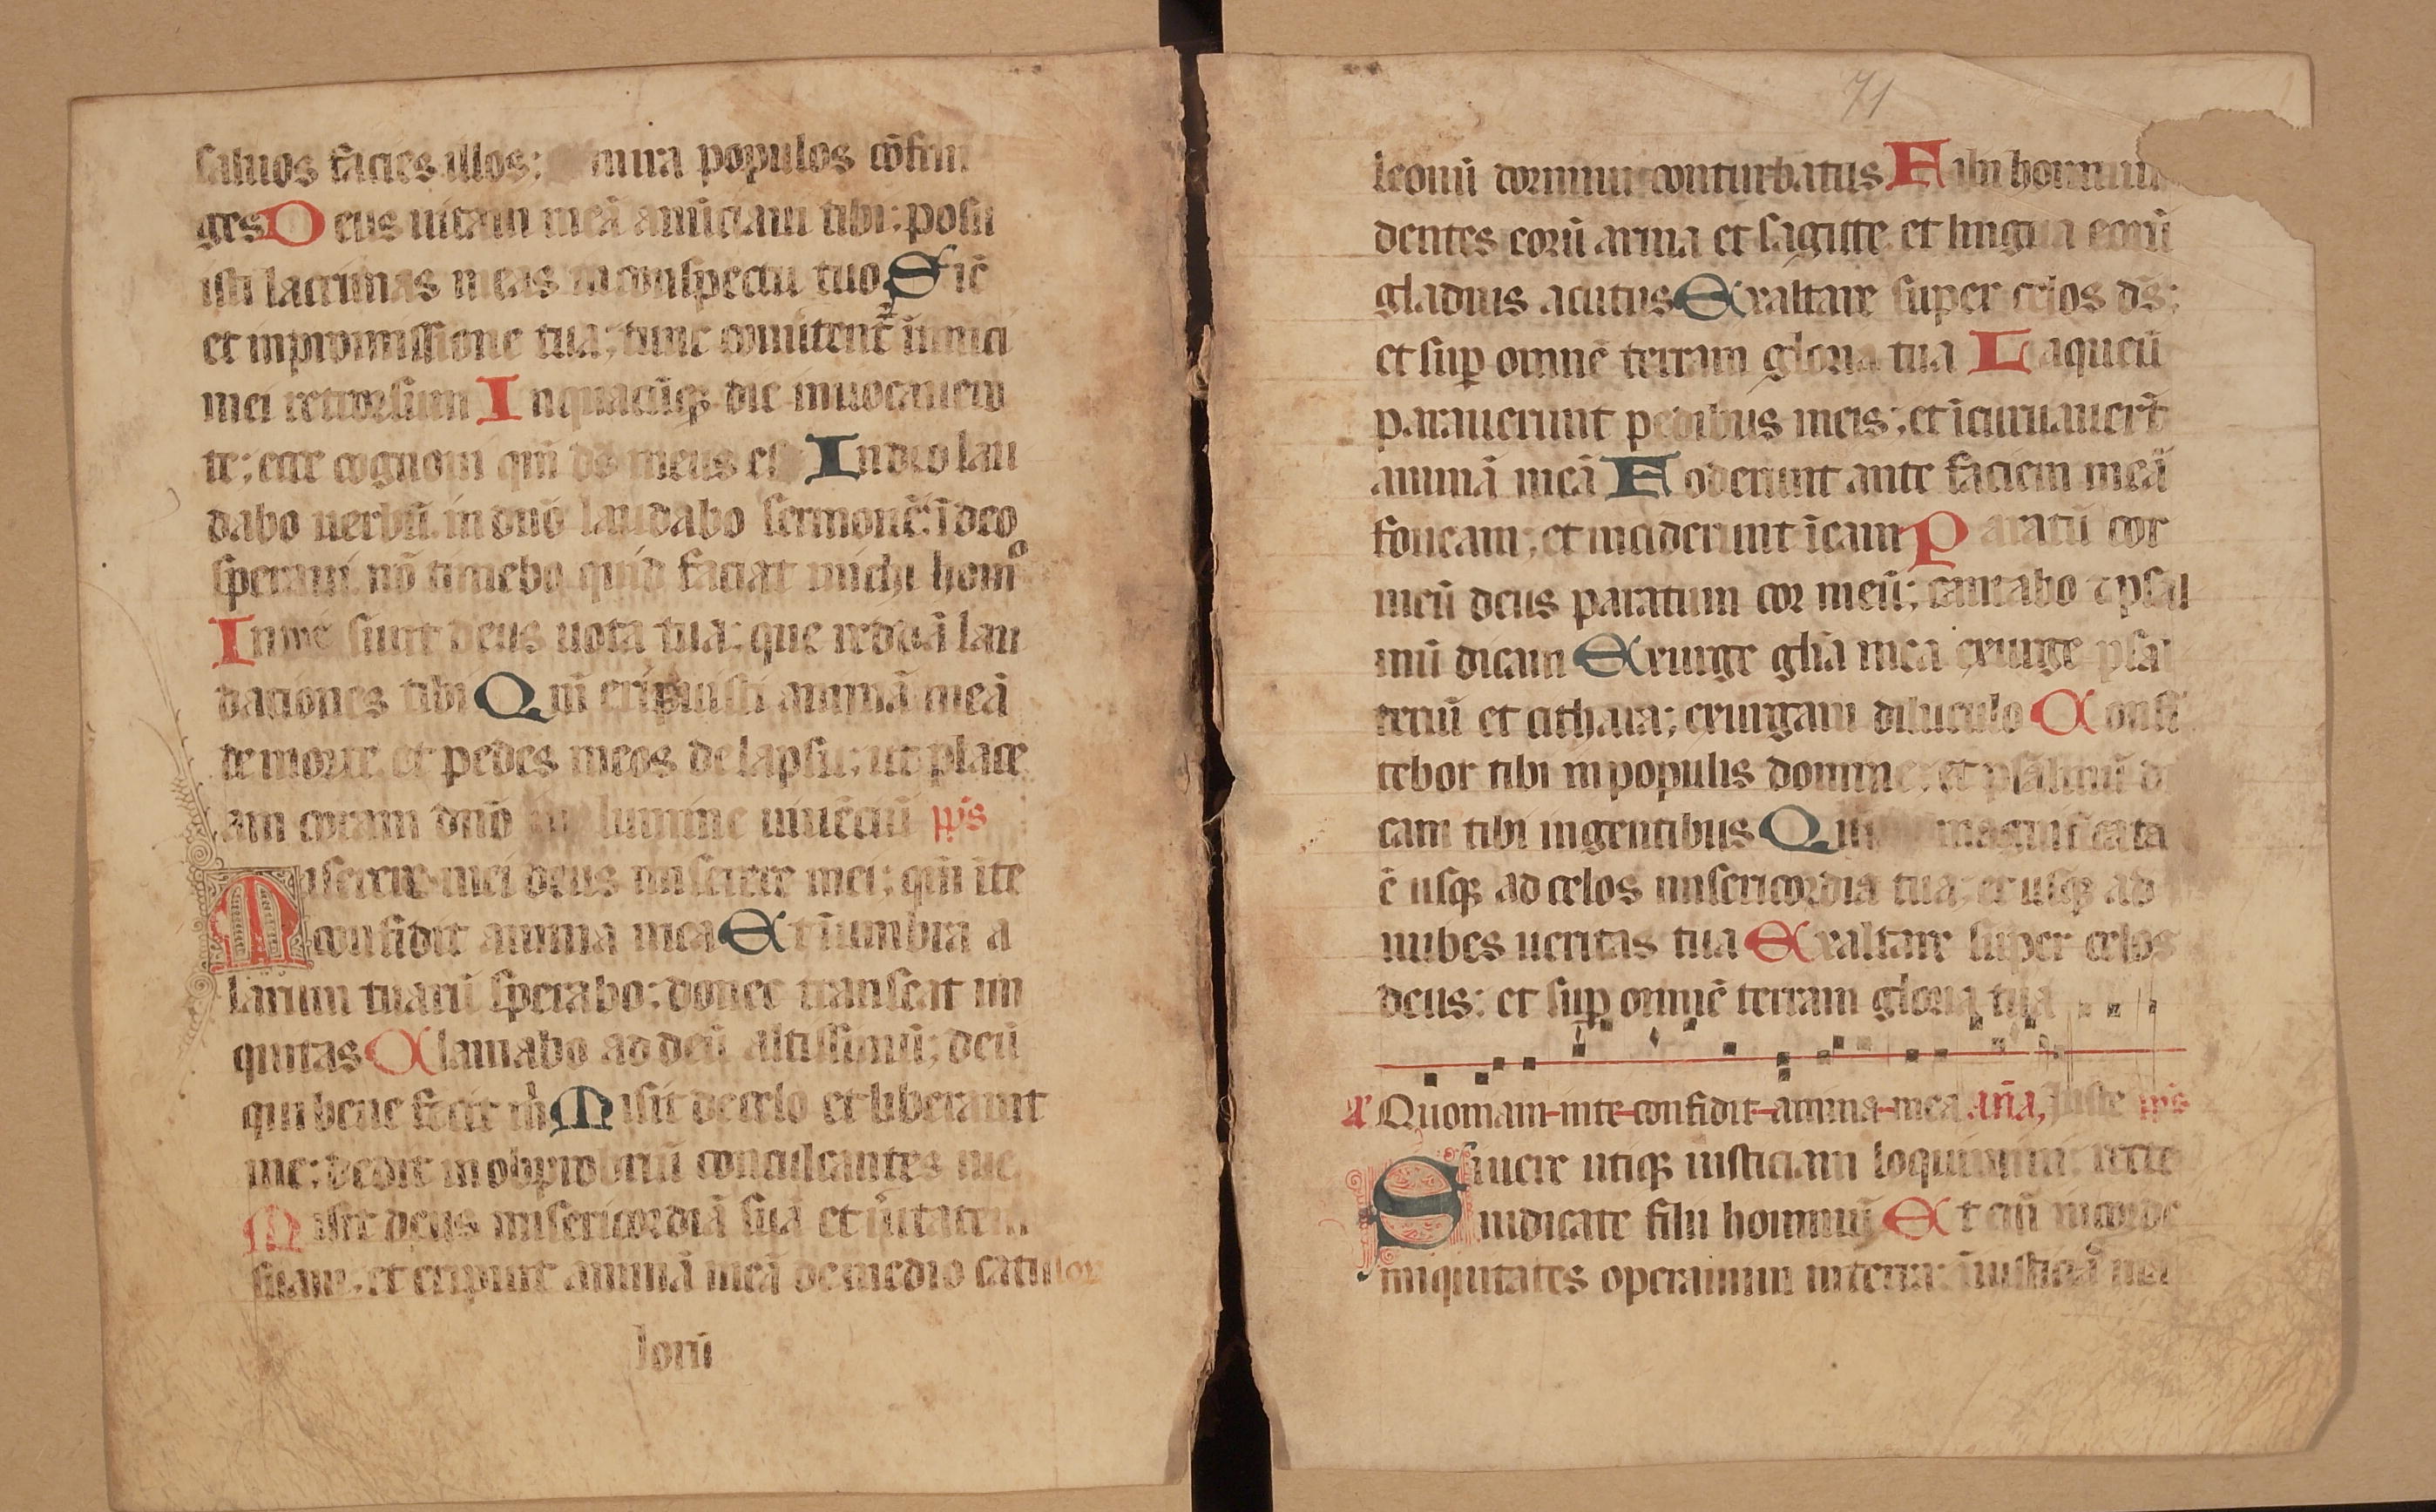 saluos facies illos: in ira populos cōfrin
ges Deus uitam meā anūciaui tibi; posu
isti lacrimas meas in conspectu tuo Sic̄
et inpromissione tua; tunc conūtent̄ inimici
mei retrorsum Inquacūqꝫ die inuocauero
te; ecce cognoui qm̄ ds̄ meus es In deo lau
dabo uerbū. in dn̄o laudabo sermonē: ī deo
speraui. nō timebo quid faciat michi homo
In me sunt deus uota tua; que reddā lau
dationes tibi Qm̄ eripuisti animā meā
de morte. et pedes meos de lapsu; ut place
am coram dn̄o in lumine uiuēciū ps̄
Miserere mei deus miserere mei; qm̄ īte
confidit anima mea Et ī umbra a
larum tuarū sperabo; donec transeat ini
quitas Clamabo ad deū altissimū; deū
qui bene fecit m̄ Misit de celo et liberauit
me; dedit in obprobriū conculcantes me
Misit deus misericordiā suā et ueritatem
suam. et eripuit animā meā de medio catulor
lorū
71
leonū dormiui conturbatus Filii hominū
dentes eorū arma et sagitte. et lingua eorū
gladius acutus Exaltare super celos ds̄;
et suꝑ omnē terram gloria tua Laqueū
parauerunt pedibus meis; et īcuruauert̄
animā meā Foderunt ante faciem meā
foueam; et inciderunt ī eam Paratū cor
meū deus paratum cor meū; cantabo ⁊ psal
mū dicam Exurge glīa mea exurge psal
teriū et cithara; exurgam diluculo Confi
tebor tibi in populis domine; et psalmū di
cam tibi in gentibus Qm̄ magnificata
ē usqꝫ ad celos misericordia tua; et usqꝫ ad
nubes ueritas tua Exaltare super celos
deus; et suꝑ omnē terram gloria tua
A Quoniam in te confidit anima mea an̄a, Juste ps̄
Si uere utiqꝫ iusticiam loquimini; recte
iudicate filii hominū Et cū in corde
iniquitates operamini in terra; iniusticiā